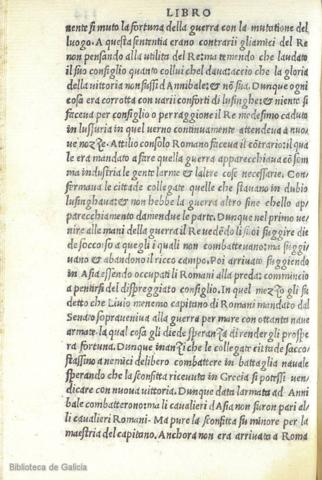 LIBRO
nente si muto la fortuna della guerra con la mutatione del
luogo. A questa sententia erano contrarii gliamici del Re
non pensando alla utilita del Re: ma temendo che laudato
il suo consiglio quanto collui chel daua: accio che la gloria
della vittoria non fussi d'Annibale: & nõ sua. Dunque ogni
cosa era corrotta con varii conforti di lusinghe: & niente si
faceua per consiglio o per raggione il Re medesimo caduto
in lussuria in quel verno continuamente attendeua a nuo/
ue nozze. Attilio consolo Romano faceua il cõtrario: il qua
le era mandato a fare quella guerra apparecchiaua cõ som
ma industria le gente larme & laltre cose necessarie. Con/
fermaua le cittade collegate quelle che stauano in dubio
lusinghaua: & non hebbe la guerra altro fine chello ap/
parecchiamento damendue le parti. Dunque nel primo ve/
nire alle mani della guerra il Re vedẽdo li suoi fuggire die
de soccoso a quegli i quali non combatteuano: ma fuggi/
uano & abandono il ricco campo. Poi arriuato fuggiendo
in Asia essendo occupati li Romani alla preda: cominciò
a pentirsi del dispreggiato consiglio. In quel mezzo gli fu
detto che Liuio menemo capitano di Romani mandato dal
Senato soprauenìua alla guerra per mare con ottanta naue
armate. la qual cosa gli diede speranza di render gli prospe
ra fortuna. Dunque inanzi che le collegate cittude sacco/
stassino a nemici delibero combattere in battaglia nauale
sperando che la sconfitta riceuuta in Grecia si potessi ven/
dicare con nuoua vittoria. Dunque data larmata ad Anni
bale combatterono: ma li caualieri d'Asia non furon pari al/
li caualieri Romani. Ma pure la sconfitta fu minore per la
maestria del capitano. Anchora non era arriuata a Roma
Biblioteca de Galicia